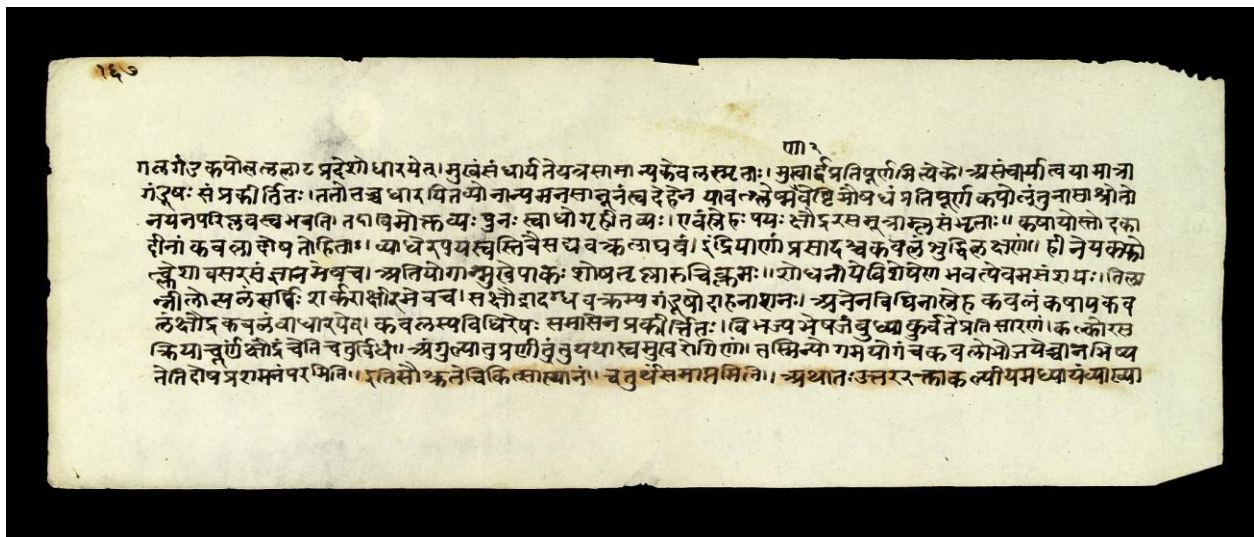 १६७
गा२
गलगंडकपोलललाटप्रदेशोधारयेत्। मुखंसंधार्यतेयत्रसामान्यकेवलस्मृताः। प्रतिपूर्ण असंचार्यात्वयामात्रा
गंडूषः संप्रकीर्तितः। ततोवच्चधारयितव्योनान्यमनसानूनंस्वदेहेन यावत् प्रतिपूर्ण कपोलंतुनासाश्रोतो
नयनपरिप्लवश्चभवति। तदाविमोक्तव्यः पुनः स्वाधोगृहीतव्यः। एवंस्नेहः पयः क्षौद्ररसमूत्राम्लसंभृताः॥ कषायोस्तोदका
दीनांकवलादोषतोहिताः। व्याधेरपचयस्तुस्तिवैसद्यवक्त्रलाघवं। इंद्रियाणांप्रसादश्चकवलेशुद्धिलक्षणं॥ हीनेयकफो
त्क्लेशावसरसंज्ञानमेवच। अतियोगान्मुखेपाकः शोषतृष्णारुचिक्लमः॥ शोधनीयेविशेषेणभवत्येवमसंशयः। तिला
न्नीलोत्पलंसर्पिः शर्कराक्षीरमेवच। सक्षौद्रोदग्धवक्त्रस्यगंडूषोदाहनाशनः। अनेनविधिनास्नेहकवलंकषायकव
लंक्षौद्रकवलंवाधारयेत्। कवलस्यविधिरेषः समासेनप्रकीर्त्तितः। विभज्यभेषजंबुध्याकुर्वतेप्रतिसारणं। कल्कोरस
क्रियाचूर्णंक्षौद्रंचेतिचतुर्विधं॥ अंगुल्यातुप्रणीतुंतुयथास्वमुखरोगिणां। तस्मिन्योगमयोगंचकवलो
नेतिदोषप्रशमनंपरमिति॥ इतिसौश्रुतेचिकित्सास्थानं॥ चतुर्थंसमाप्तमिति॥ अथातःउत्तर कल्पीयमध्यायंव्याख्या